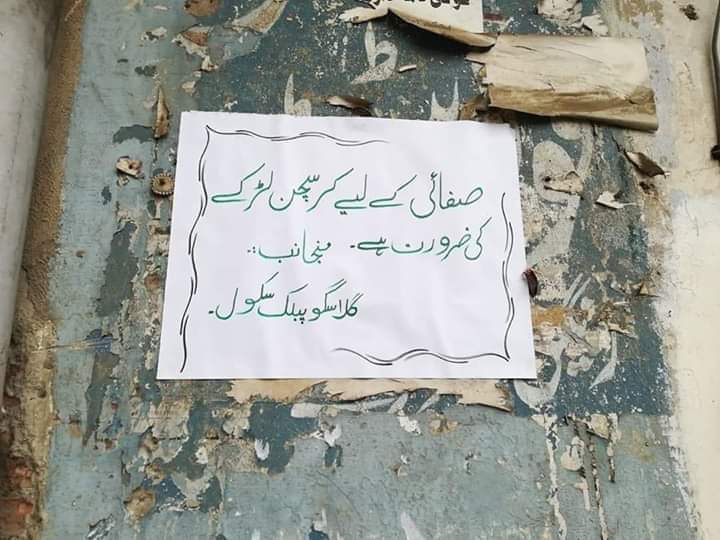 صفائی کے لیے کرسچن لڑکے
کی ضرورت ہے۔ منجانب:۔
گلاسگو پبلک سکول۔